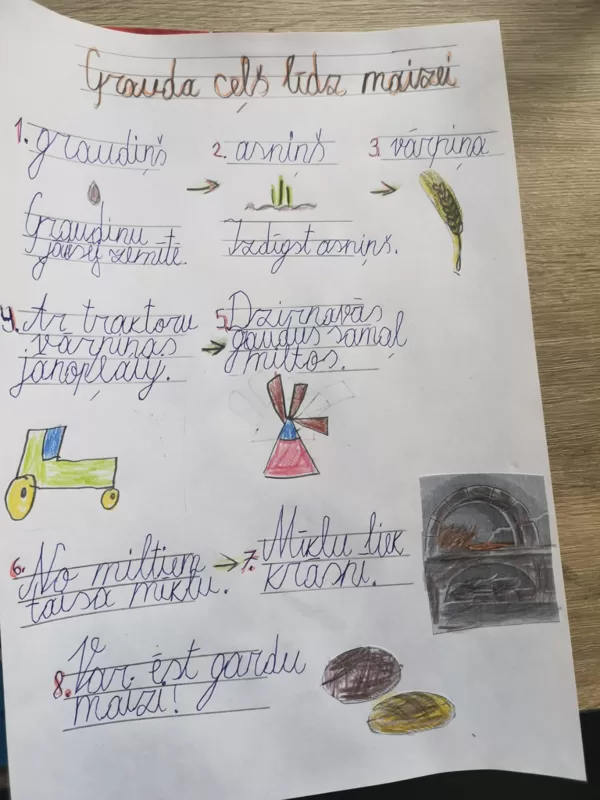 Grauda ceļš līdz maizei
1. graudiņš
2. asniņš
3. vārpiņa
Graudiņu
jāsēj zemītē.
Izdīgst asniņš.
4. Ar traktoru
vārpiņas
jānopļauj.
5. Dzirnavās
gaudus samaļ
miltos.
6. No miltiem
taisa mīklu.
7. Mīklu liek
krāsnī.
8. Var ēst gardu
maizi!